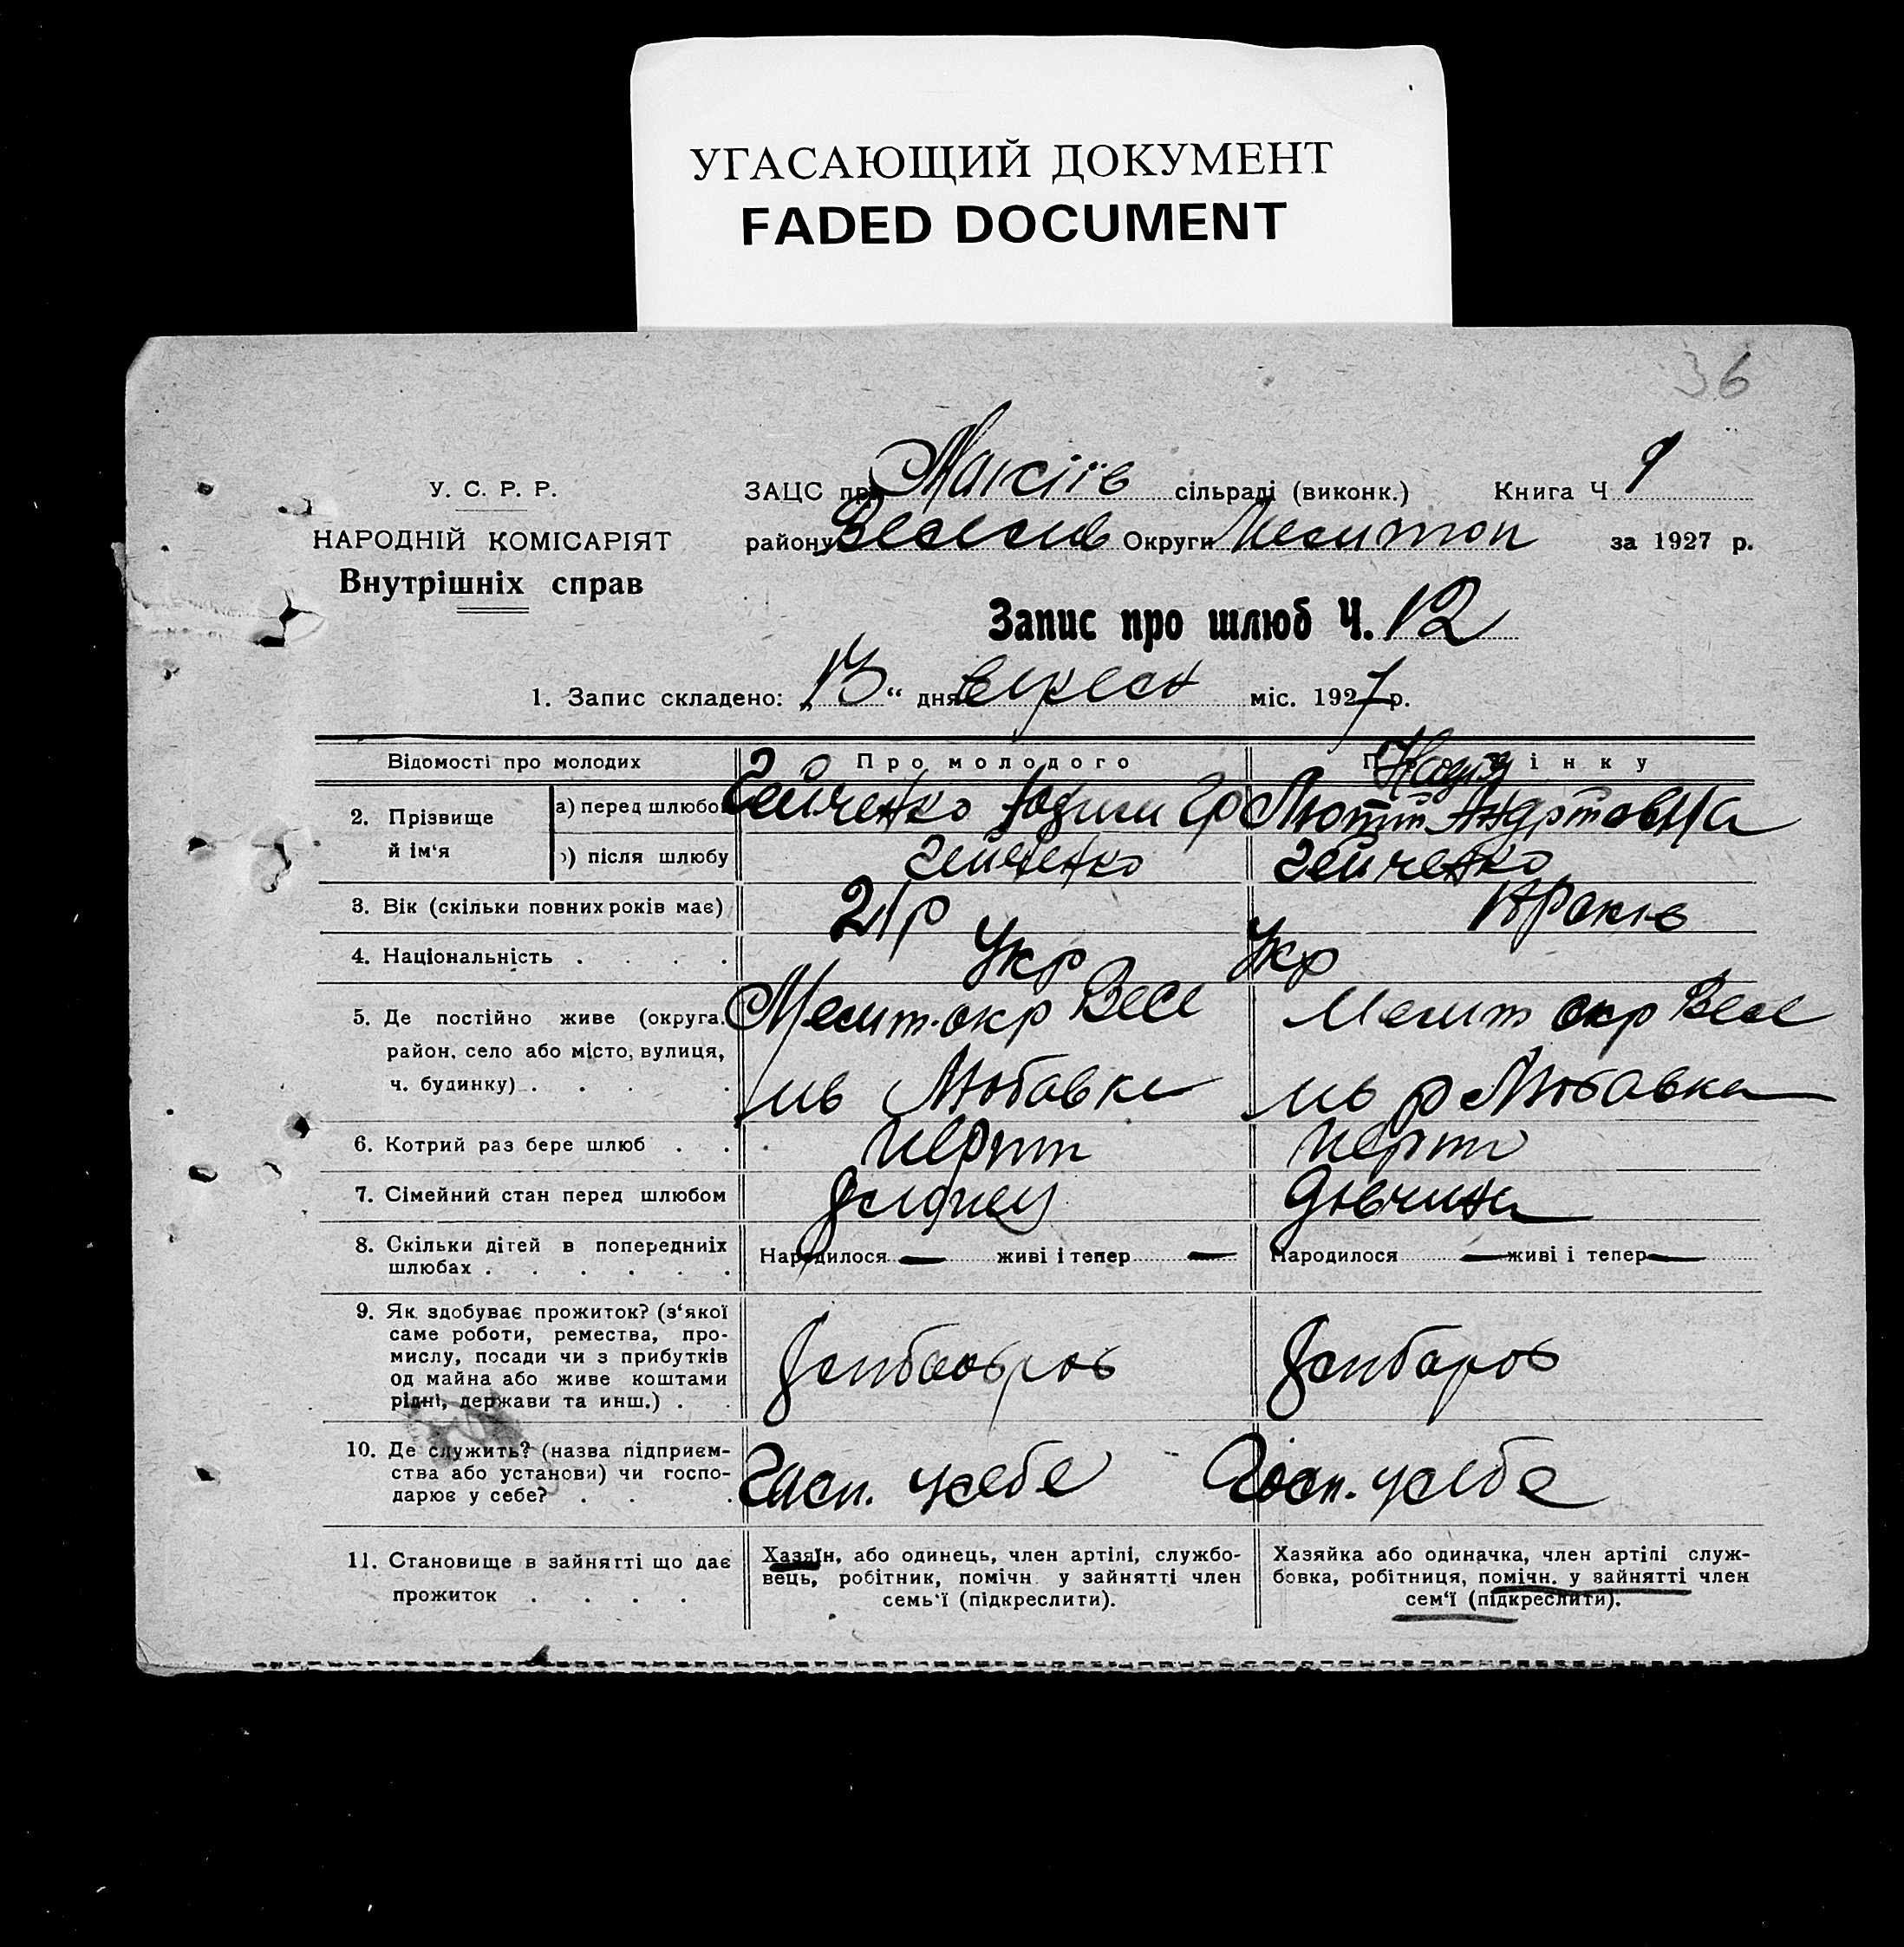 УГАСАЮЩИЙ ДОКУМЕНТ
FADED DOCUMENT
36
У. С. Р. Р.
НАРОДНІЙ КОМІСАРІЯТ
Внутрішніх справ
ЗАЦС при сільраді (виконк.) Книга Ч 1
району Веселів Округи Мелитоп за 1927 р.
Запис про шлюб Ч. 12
1. Запис складено: „13“ дня вересн міс. 1927 р.
Відомості про молодих
Про молодого
2. Прізвище й ім‘я
а) перед шлюбо
Гейченко Гр
Надія
Лютий
) після шлюбу
Гейченко
Гейченко
3. Вік (скільки повних років має)
21 р
років
4. Національність . . . .
Укр
Укр
5. Де постійно живе (округа.
район, село або місто, вулиця,
ч. будинку) . . . .
Мелит. окр Весе
лів Любавка
Мелит окр Весе
лів р Любавка
6. Котрий раз бере шлюб . .
перш
перш
7. Сімейний стан перед шлюбом
дівчина
8. Скільки дітей в попередниіх
шлюбах . . . . . .
Народилося — живі і тепер —
Народилося — живі і тепер —
9. Як здобуває прожиток? (з‘якої
саме роботи, ремества, про-
мислу, посади чи з прибутків
од майна або живе коштами
рідні, держави та инш.) . .
Хлибороб
10. Де служить? (назва підприєм-
ства або установи) чи госпо-
дарює у себе? . . .
Госп. усебе
Госп. усебе
11. Становище в зайнятті що дає
прожиток . . . .
Хазяїн, або одинець, член артілі, службо-
вець, робітник, помічн. у зайнятті член
семь‘ї (підкреслити).
Хазяйка або одиначка, член артілі служ-
бовка, робітниця, помічн. у зайнятті член
сем‘ї (підкреслити).